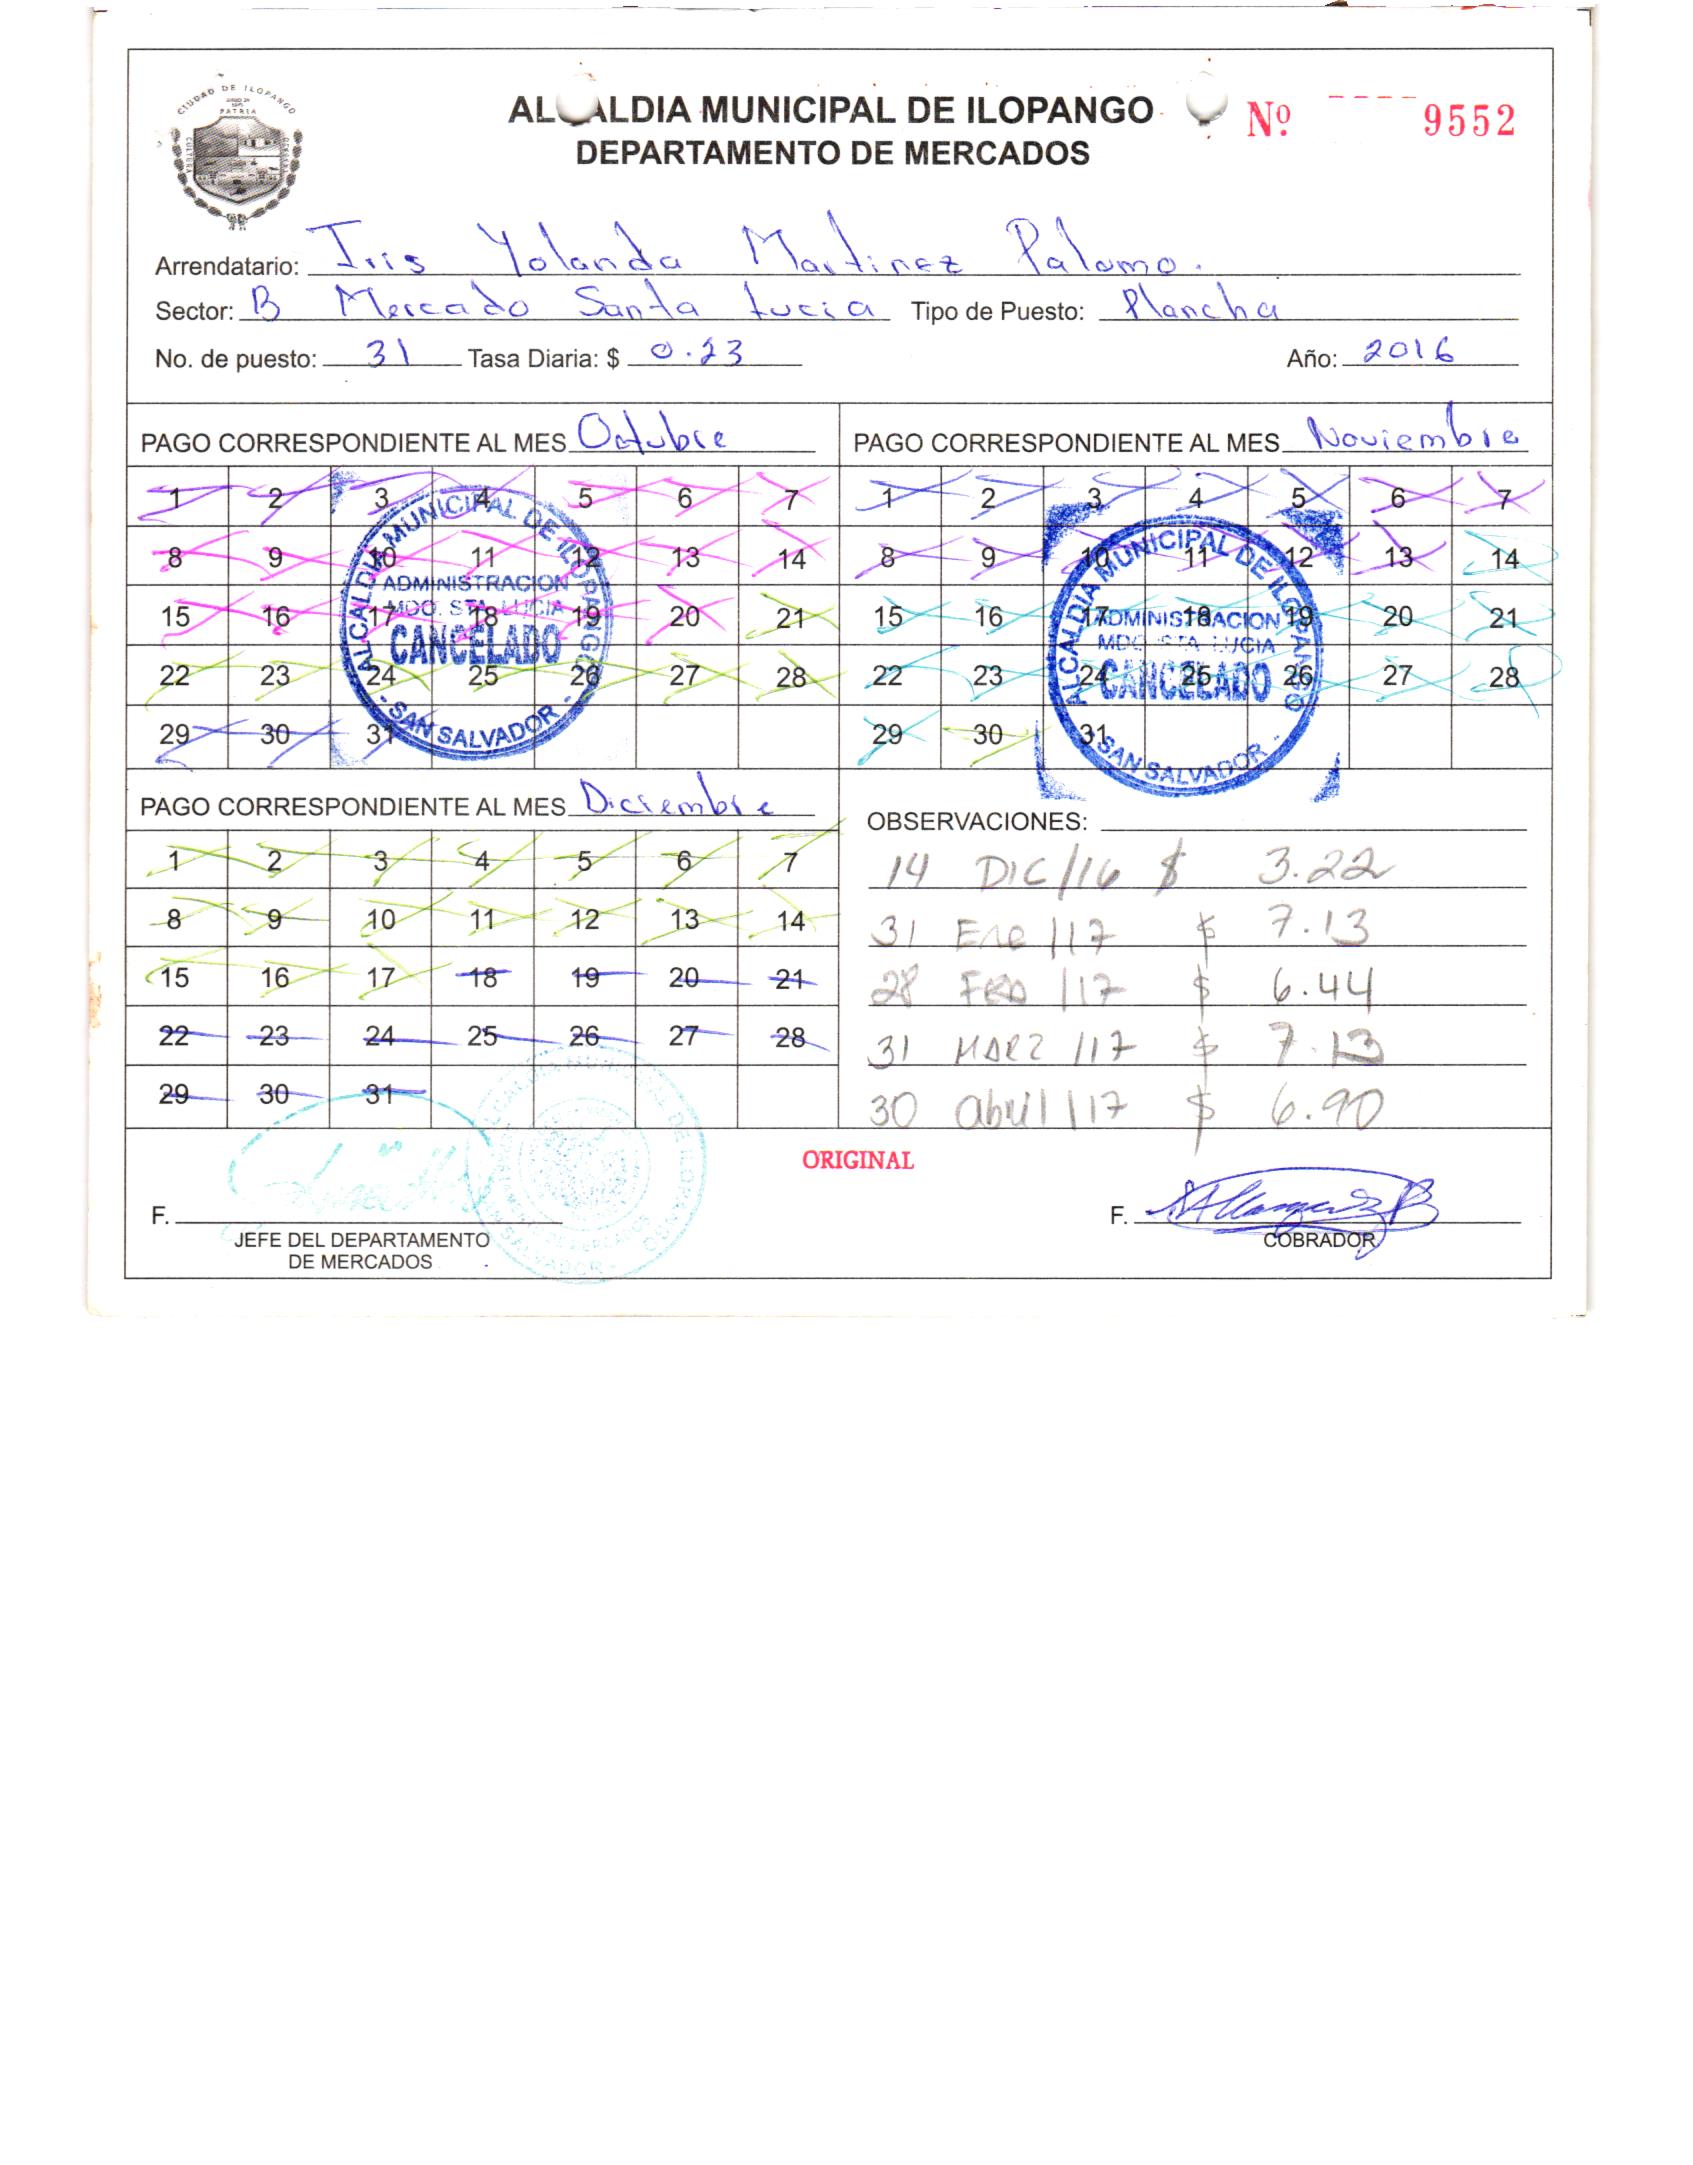 CIUDAD DE ILOPANGO
PATRIA
CULTURA
ALCALDIA MUNICIPAL DE ILOPANGO
DEPARTAMENTO DE MERCADOS
Nº 9552
Arrendatario: Iris Yolanda Martinez Palomo.
Sector: B Mercado Santa Lucia Tipo de Puesto: Plancha
No. de puesto: 31 Tasa Diaria: $ 0.23 Año: 2016
PAGO CORRESPONDIENTE AL MES Octubre
1 2 3 4 5 6 7
8 9 10 11 12 13 14
15 16 17 18 19 20 21
22 23 24 25 26 27 28
29 30 31
ALCALDIA MUNICIPAL DE ILOPANGO
ADMINISTRACION
MDO. STA. LUCIA
CANCELADO
- SAN SALVADOR -
PAGO CORRESPONDIENTE AL MES Noviembre
1 2 3 4 5 6 7
8 9 10 11 12 13 14
15 16 17 18 19 20 21
22 23 24 25 26 27 28
29 30 31
ALCALDIA MUNICIPAL DE ILOPANGO
ADMINISTRACION
MDO. STA. LUCIA
CANCELADO
- SAN SALVADOR -
PAGO CORRESPONDIENTE AL MES Diciembre
1 2 3 4 5 6 7
8 9 10 11 12 13 14
15 16 17 18 19 20 21
22 23 24 25 26 27 28
29 30 31
OBSERVACIONES:
14 DIC/16 $ 3.22
31 Ene/17 $ 7.13
28 FEB/17 $ 6.44
31 MARZ/17 $ 7.13
30 abril/17 $ 6.90
ORIGINAL
F.
JEFE DEL DEPARTAMENTO
DE MERCADOS
F.
COBRADOR